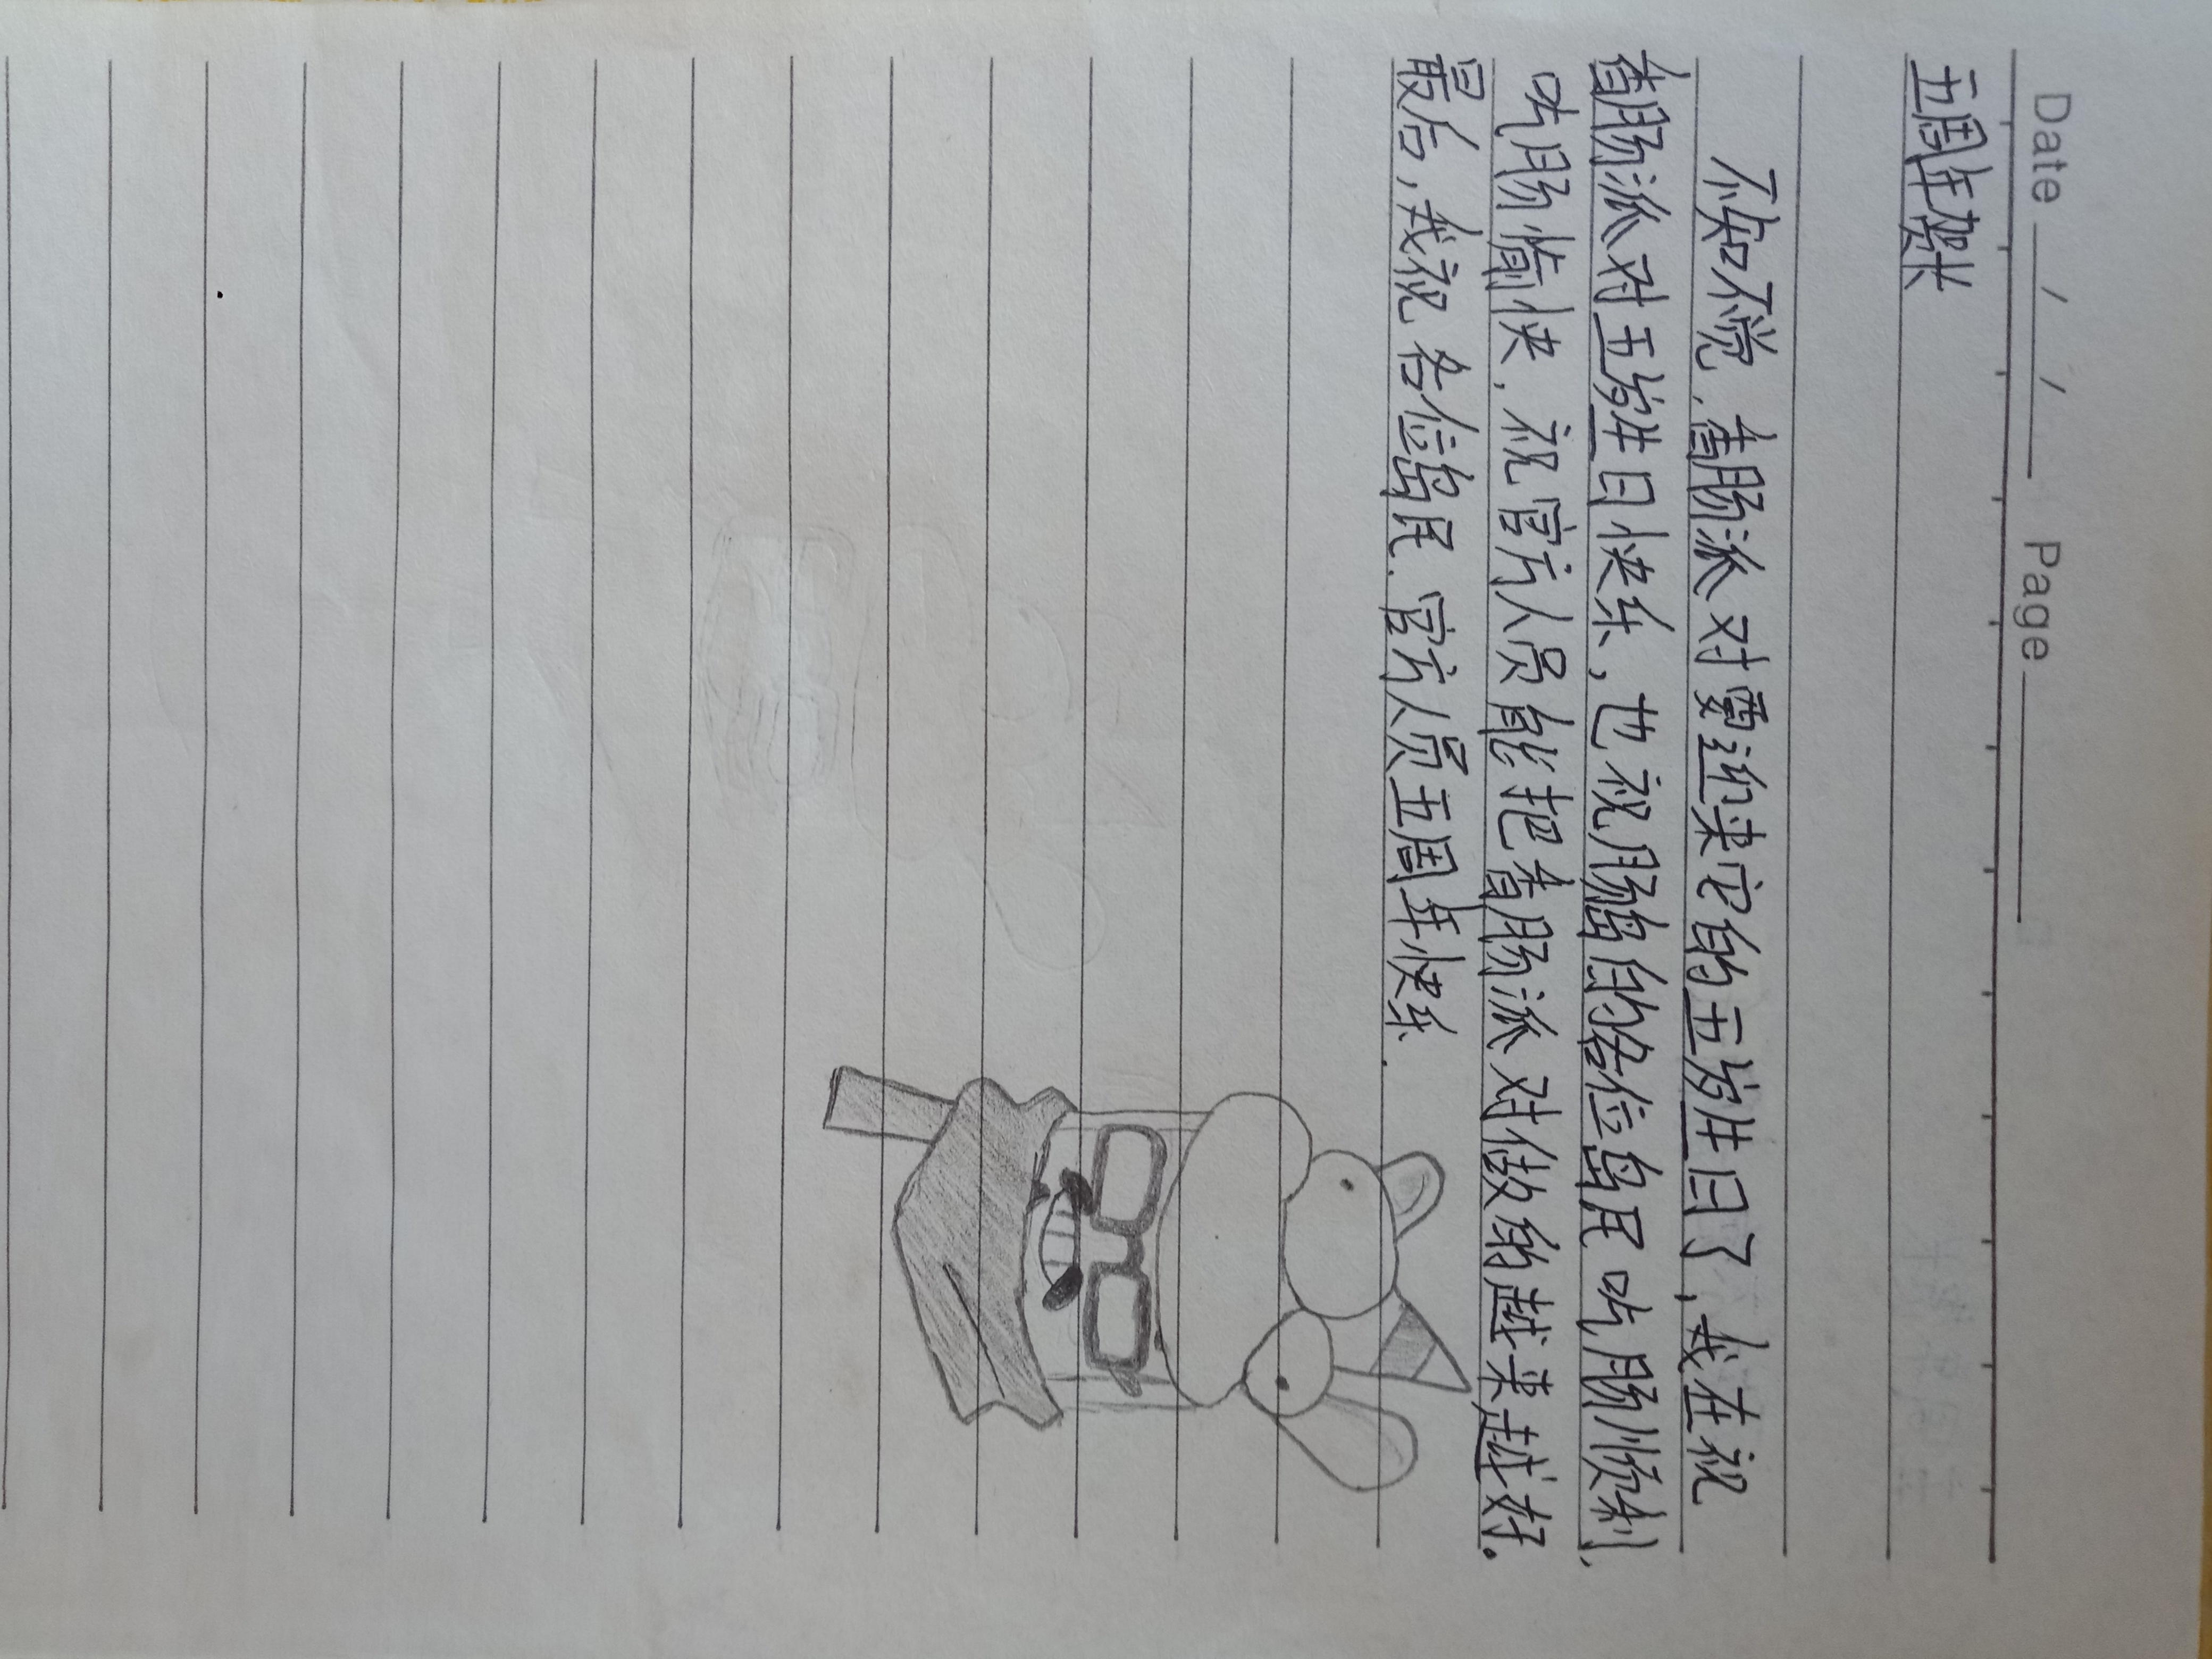 Date / / Page
五周年贺长
不知不觉，香肠派对要迎来它的五岁生日了，我在祝
香肠派对五岁生日快乐，也祝肠岛的各位岛民吃肠顺利，
吃肠愉快，祝官方人员能把香肠派对做的越来越好。
最后，我祝各位岛民.官方人员五周年快乐.